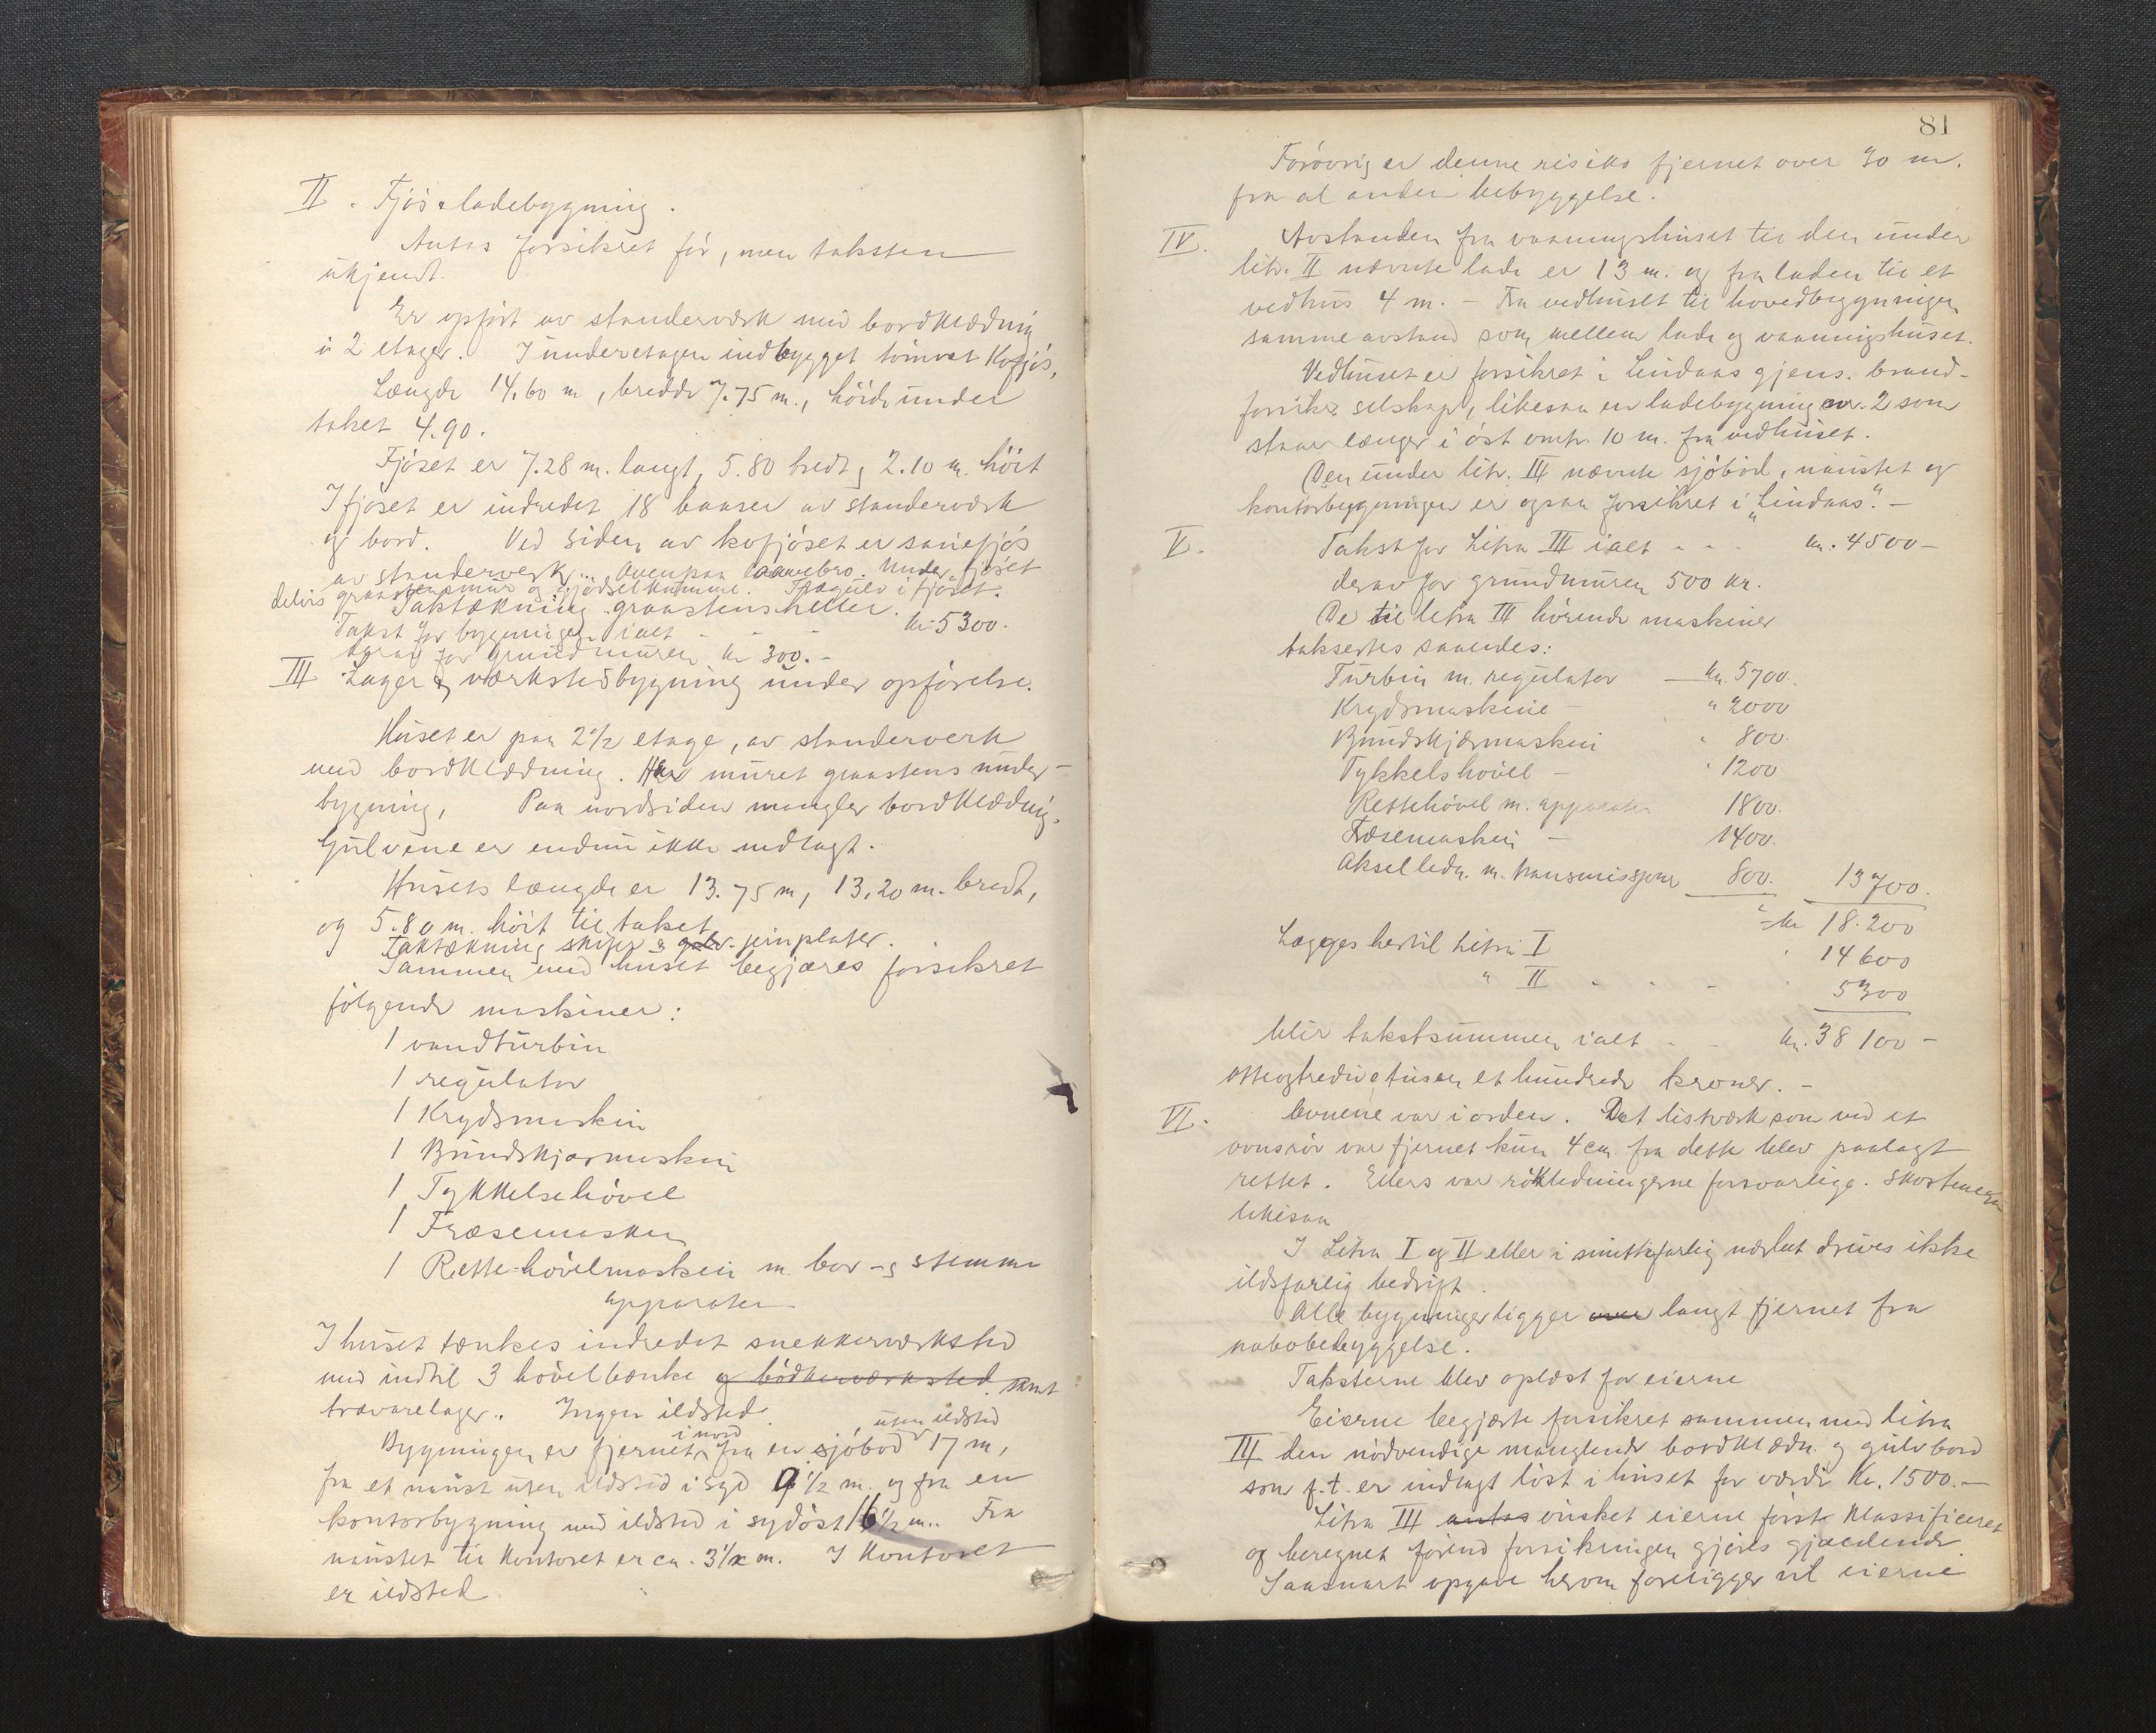 II. Fjøs & ladebygning.
Antas forsikret før, men taksten
ukjendt.
Er opført av standerværk med bordklædning
i 2 etager. I underetagen indbygget tømret Kofjøs,
Længde 14,60 m, bredde 7.75 m., høide under
taket 4.90.
Fjøset er 7.28 m. langt, 5.80 bredt, 2.10 m. høit
I fjøset er indredet 18 baaser av standerværk
og bord. Ved siden av kofjøset er sauefjøs
av standerverk. Ovenpaa laavebro. Under fjøset
delvis graastensmur og gjødselkumme. Trægulv i fjøset.
Taktækning graastensheller.
Takst for bygningen ialt - - - kr 5300.
derav for grundmuren kr 300.-
III Lager & værkstedbygning under opførelse.
Huset er paa 2 1/2 etage, av standerverk
med bordklædning. Har muret graastens under-
bygning, Paa nordsiden mangler bordklædning.
Gulvene er endnu ikke indlagt.
Husets længde er 13.75 m, 13,20 m. bredt,
og 5.80 m. høit til taket
Taktækning skifer & galv. jernplater.
Sammen med huset begjæres forsikret
følgende maskiner:
1 vandturbin
1 regulator
1 Krydsmaskin
1 Bundskjærmaskin
1 Tykkelsehøvel
1 Fræsemaskin
1 Rette-høvelmaskin m. bor - & stemme
apparater
I huset tænkes indredet snekkerværksted
med indtil 3 høvelbænke og bødkerværksted. samt
trævarelager. Ingen ildsted.
i nord uten ildsted
Bygningen er fjernet fra en sjøbod 17 m,
fra et naust uten ildsted i syd 9 1/2 m. og fra en
kontorbygning med ildsted i sydøst 16 1/2 m.. Fra
naustet til kontoret er ca. 3 1/2 m. I Kontoret
er ildsted
81
Forøvrig er denne risiko fjernet over 30 m.
fra al anden bebyggelse.
IV. Avstanden fra vaaningshuset til den under
litr. II nævnte lade er 13 m. og fra laden til et
vedhus 4 m. - Fra vedhuset til hovedbygningen
samme avstand som mellem lade og vaaningshuset.
Vedhuset er forsikret i Lindaas gjens. brand-
forsikr. selskap, likesaa en ladebygning nr. 2 som
staar længer i øst omtr. 10 m. fra vedhuset.
Den under litr. III nævnte sjøbod, naustet og
kontorbygningen er ogsaa forsikret i „Lindaas". -
V. Takst for Litra III ialt - - - kr. 4500 -
derav for grundmuren 500 kr.
De til litra III hørende maskiner
taksertes saaledes:
Turbin m. regulator - kr. 5700.
Krydsmaskine - " 2000
Bundskjærmaskin " 800.
Tykkelshøvel - " 1200
Rettehøvel m. apparater 1800.
Fræsemaskin - 1400.
Aksel ledn. m. transmissjoner 800. 13700.
kr 18.200
Lægges hertil Litra I " 14600
" II - - - - 5300
blir takstsummen ialt - - kr. 38100 -
otteogtredive tusen et hundrede kroner. -
VI. Ovnene var i orden. Det listværk som ved et
ovnsrør var fjernet kun 4 cm. fra dette blev paalagt
rettet. Ellers var røkledningerne forsvarlige. Skorstenene
likesaa
I Litra I og II eller i smittefarlig nærhet drives ikke
ildsfarlig bedrift.
Alle bygninger ligger langt fjernet fra
nabobebyggelse.
Taksterne blev oplæst for eierne
Eierne begjærte forsikret sammen med litra
III den nødvendige manglende bordklædn. og gulvbord
som f.t. er indlagt løst i huset for værdi Kr. 1500.-
Litra III antas ønsket eierne først Klassificeret
og beregnet førend forsikringen gjøres gjældende.
Saasnart opgave herom foreligger vil eierne